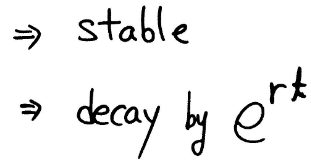 ⇒ stable
⇒ decay by e^{rt}